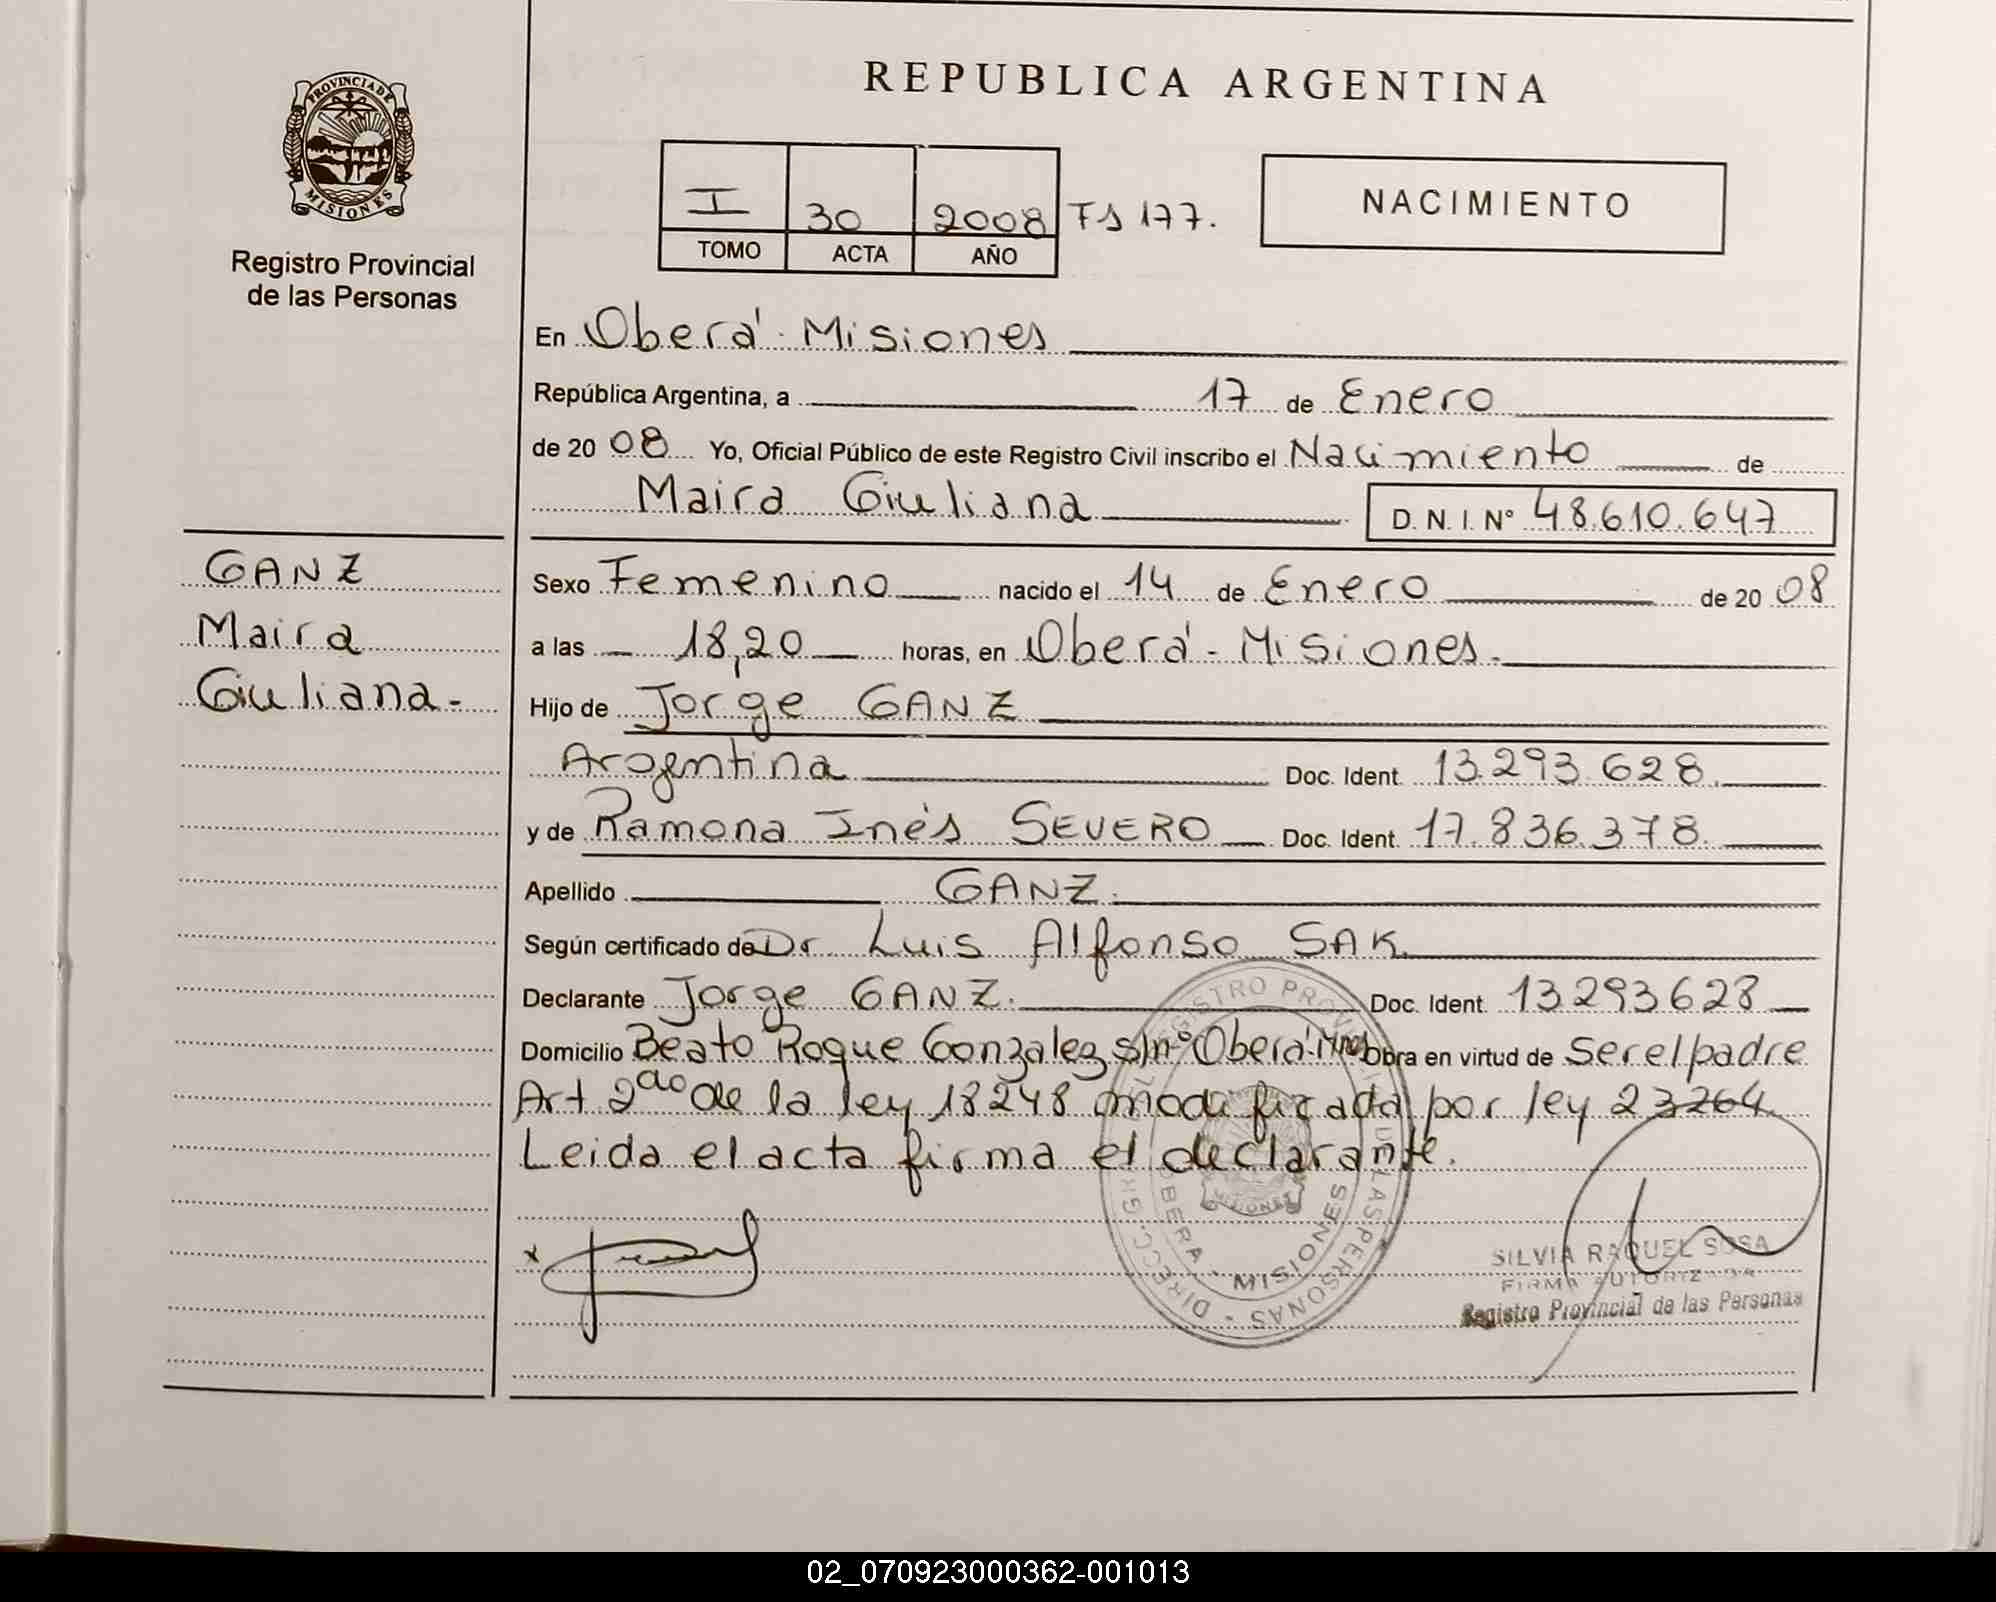 REPUBLICA ARGENTINA
PROVINCIA DE
MISIONES
Registro Provincial
de las Personas
I 30 2008 FS 177.
TOMO ACTA AÑO
NACIMIENTO
En Oberá - Misiones
República Argentina, a 17 de Enero
de 20 08 Yo, Oficial Público de este Registro Civil inscribo el Nacimiento de
Maira Giuliana D. N. I. Nº 48.610.647
GANZ
Maira
Giuliana -
Sexo Femenino nacido el 14 de Enero de 20 08
a las 18,20 horas, en Oberá - Misiones.
Hijo de Jorge GANZ
Argentina Doc. Ident. 13.293.628.
y de Ramona Inés SEVERO Doc. Ident. 17.836.378.
Apellido GANZ.
Según certificado de Dr. Luis Alfonso SAK.
Declarante Jorge GANZ. Doc. Ident. 13293628
Domicilio Beato Roque Gonzalez s/nº Oberá Mnes Obra en virtud de ser el padre
Art 2do de la ley 18248 modificada por ley 23264.
Leida el acta firma el declarante.
x
OBERA - MISIONES
MISIONES
SILVIA RAQUEL SOSA
FIRMA AUTORIZADA
Registro Provincial de las Personas
02_070923000362-001013